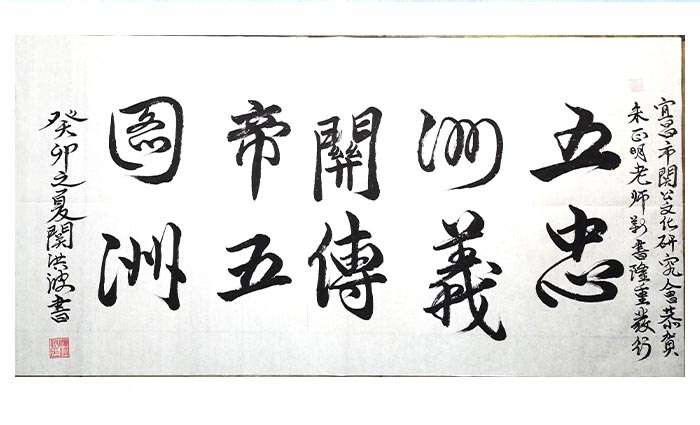 宜昌市関公文化研究會恭賀
朱正明老师新書隆重發行
五洲關帝圖
忠義傳五洲
癸卯之夏関洪波書